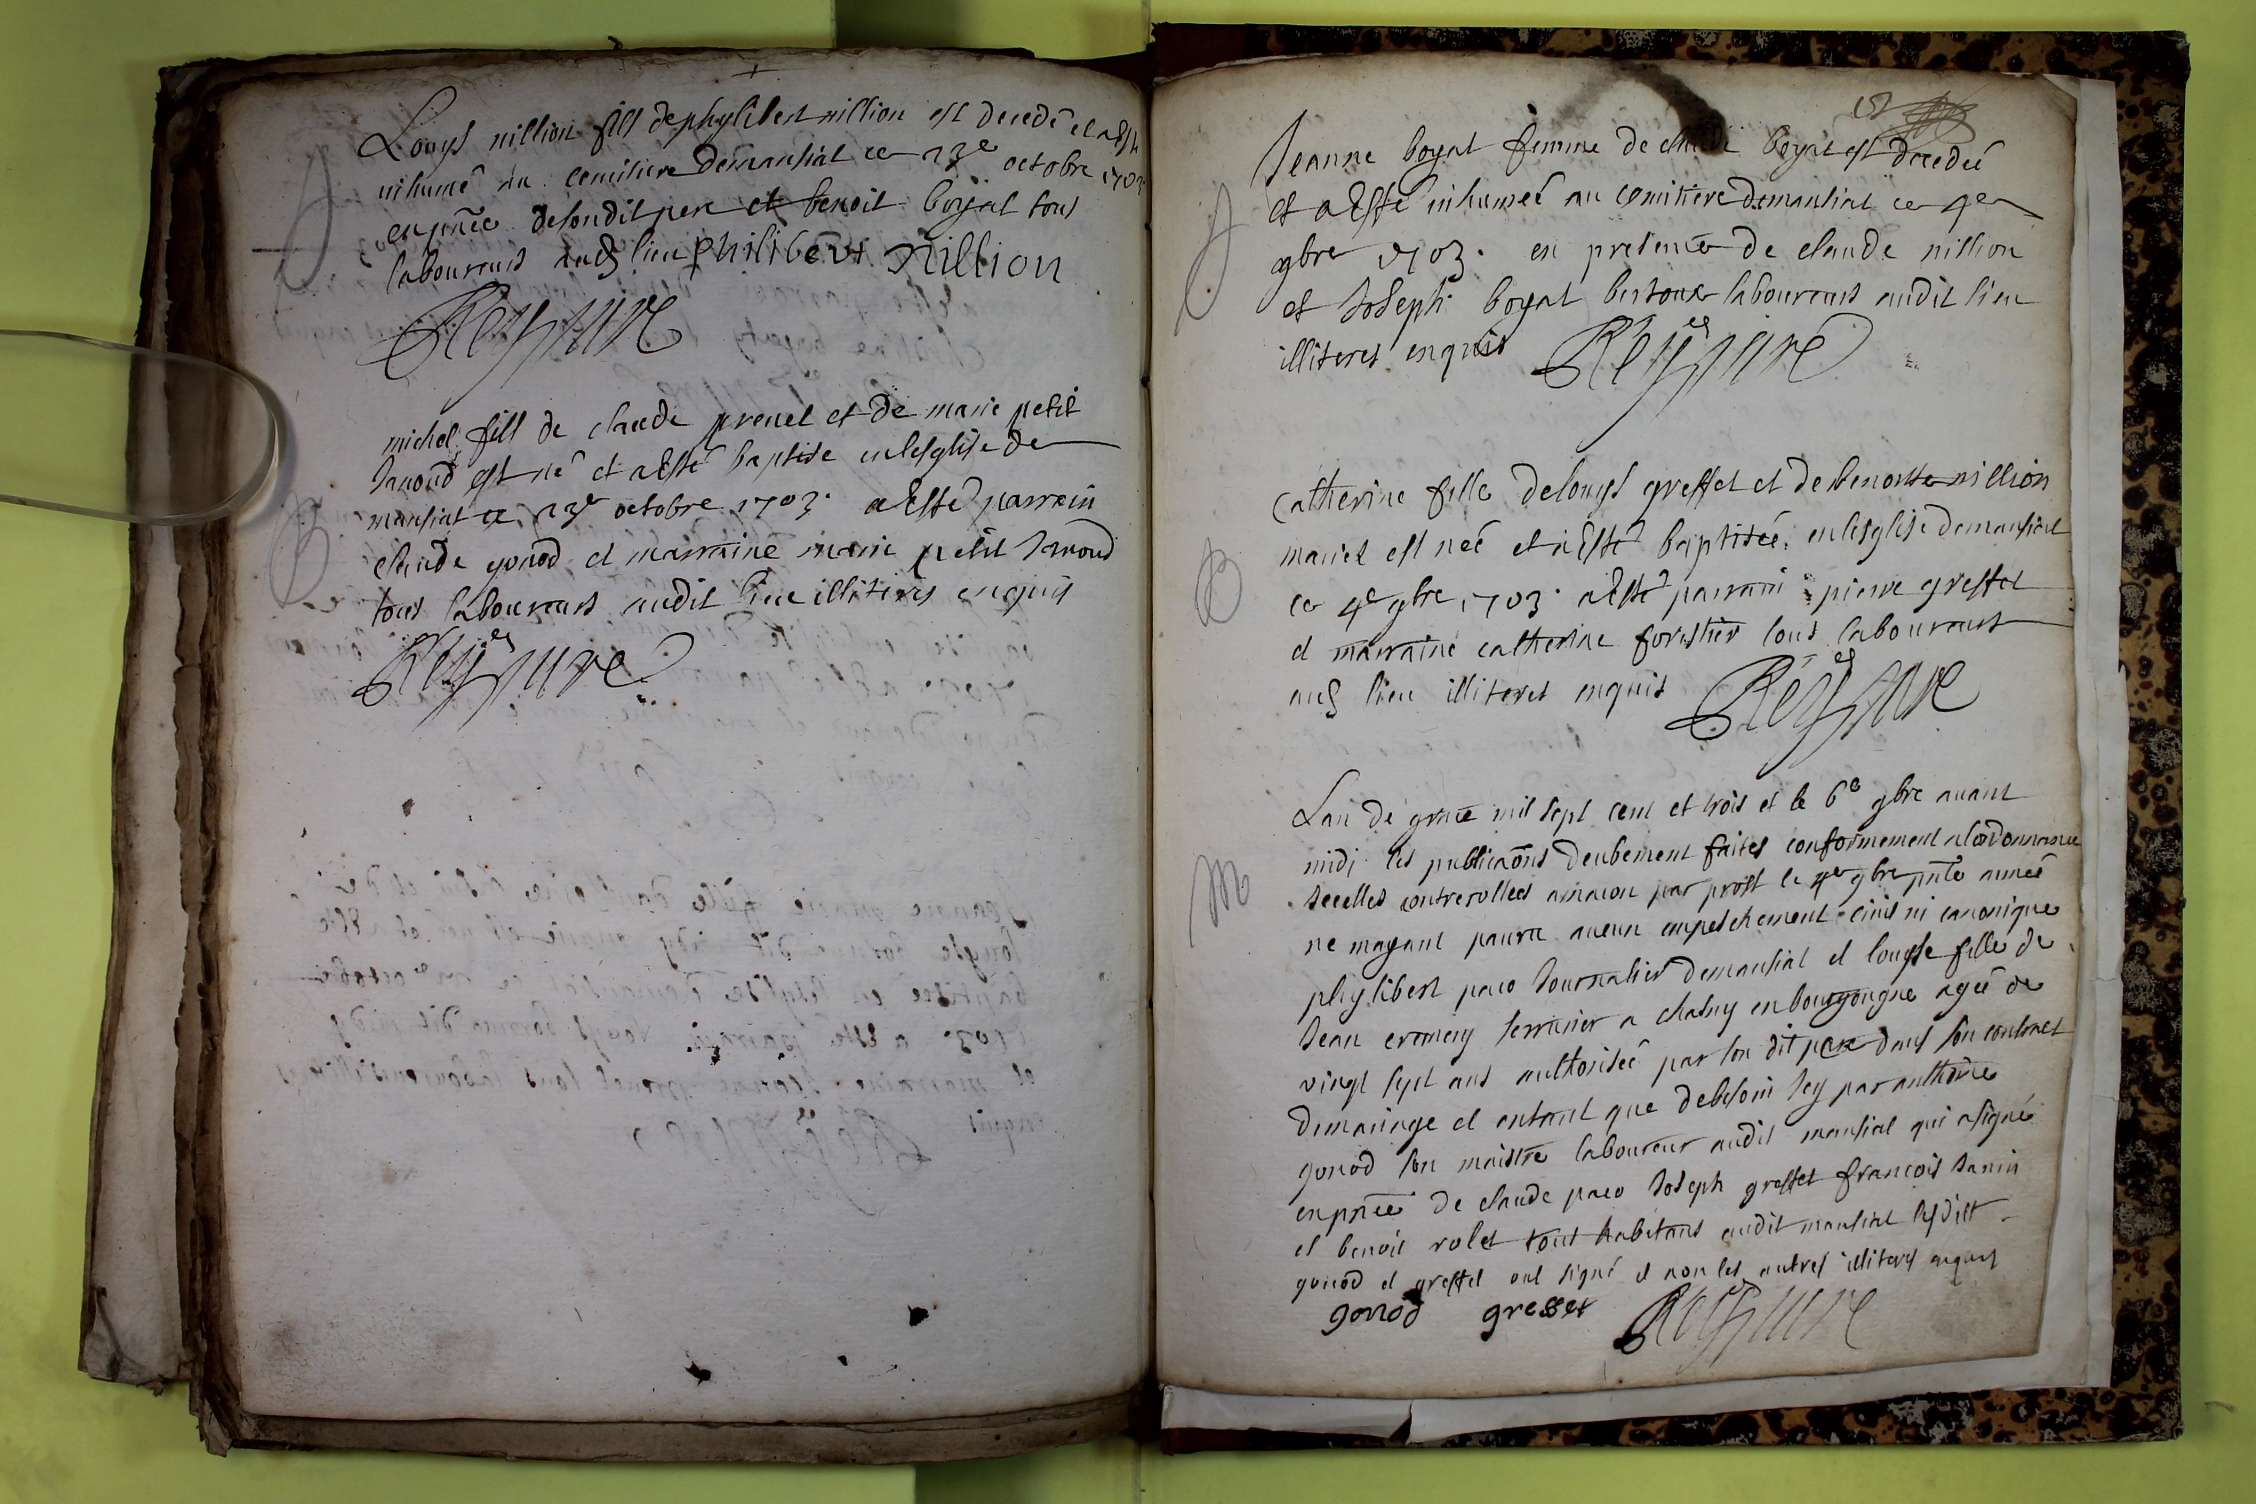 Louys nillion fils de phylibert nillion est decedé et a Esté
inhumé au cemitiere de mansiat ce 23e octobre 1703
en pnce de sondit pere et benoit boyat tous
laboureurs aud lieu philibert Nillion
Reyssure
michel fils de claude prenel et de marie petit
Janoud est né et a Esté baptisé en lesglise de
mansiat ce 23e octobre 1703. a Esté parrain
claude gonod et marraine marie petit Janoud
tous laboureurs audit lieu illiteres enquis
Reyssure
Jeanne boyat femme de claude boyat est decedeé
et a Esté inhumeé au cemitiere de mansiat ce 4e
9bre 1703. en presence de claude nillion
et Joseph boyat laboureurs audit lieu
illiteres enquis Reyssure
B
Catherine fille de louys greffet et de benoiste nillion
mariés est neé et a Esté baptiseé en lesglise de mansiat
ce 4e 9bre 1703. a Esté parrain pierre greffet
et marraine catherine forestier tous laboureurs
aud lieu illiteres enquis Reyssure
M
Lan de grace mil sept cent et trois et le 6e 9bre auant
midj les publicaons deubement faites conformement a lordonnance
Jcelles controrollees a macon par prost le 4e 9bre pnte anneé
ne mayant paru aucun empeschement ciuil ni canonique
phylibert paco Journalier de mansiat et louyse fille de
Jean serrurier a chasny en bourgougne ageé de
vingt sept ans authoriseé par son dit pere dans son contract
de mariage et entant que de besoin icy par anthoine
gonod son maistre laboureur audit mansiat qui a signé
en pnce de claude paco Joseph greffet francois Janin
et benoit rolet tous habitans audit mansiat lesdits
gonod et greffet ont signé et non les autres illiteres enquis
gonod greffet Reyssure